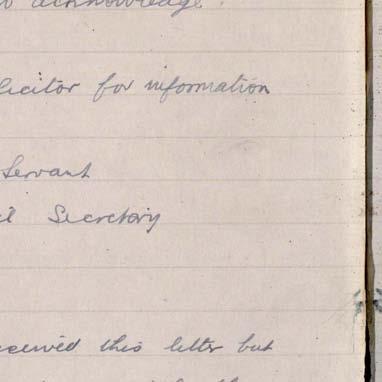 to acknowledge
licitor for information
Servant
il Secretary
eceived this letter but